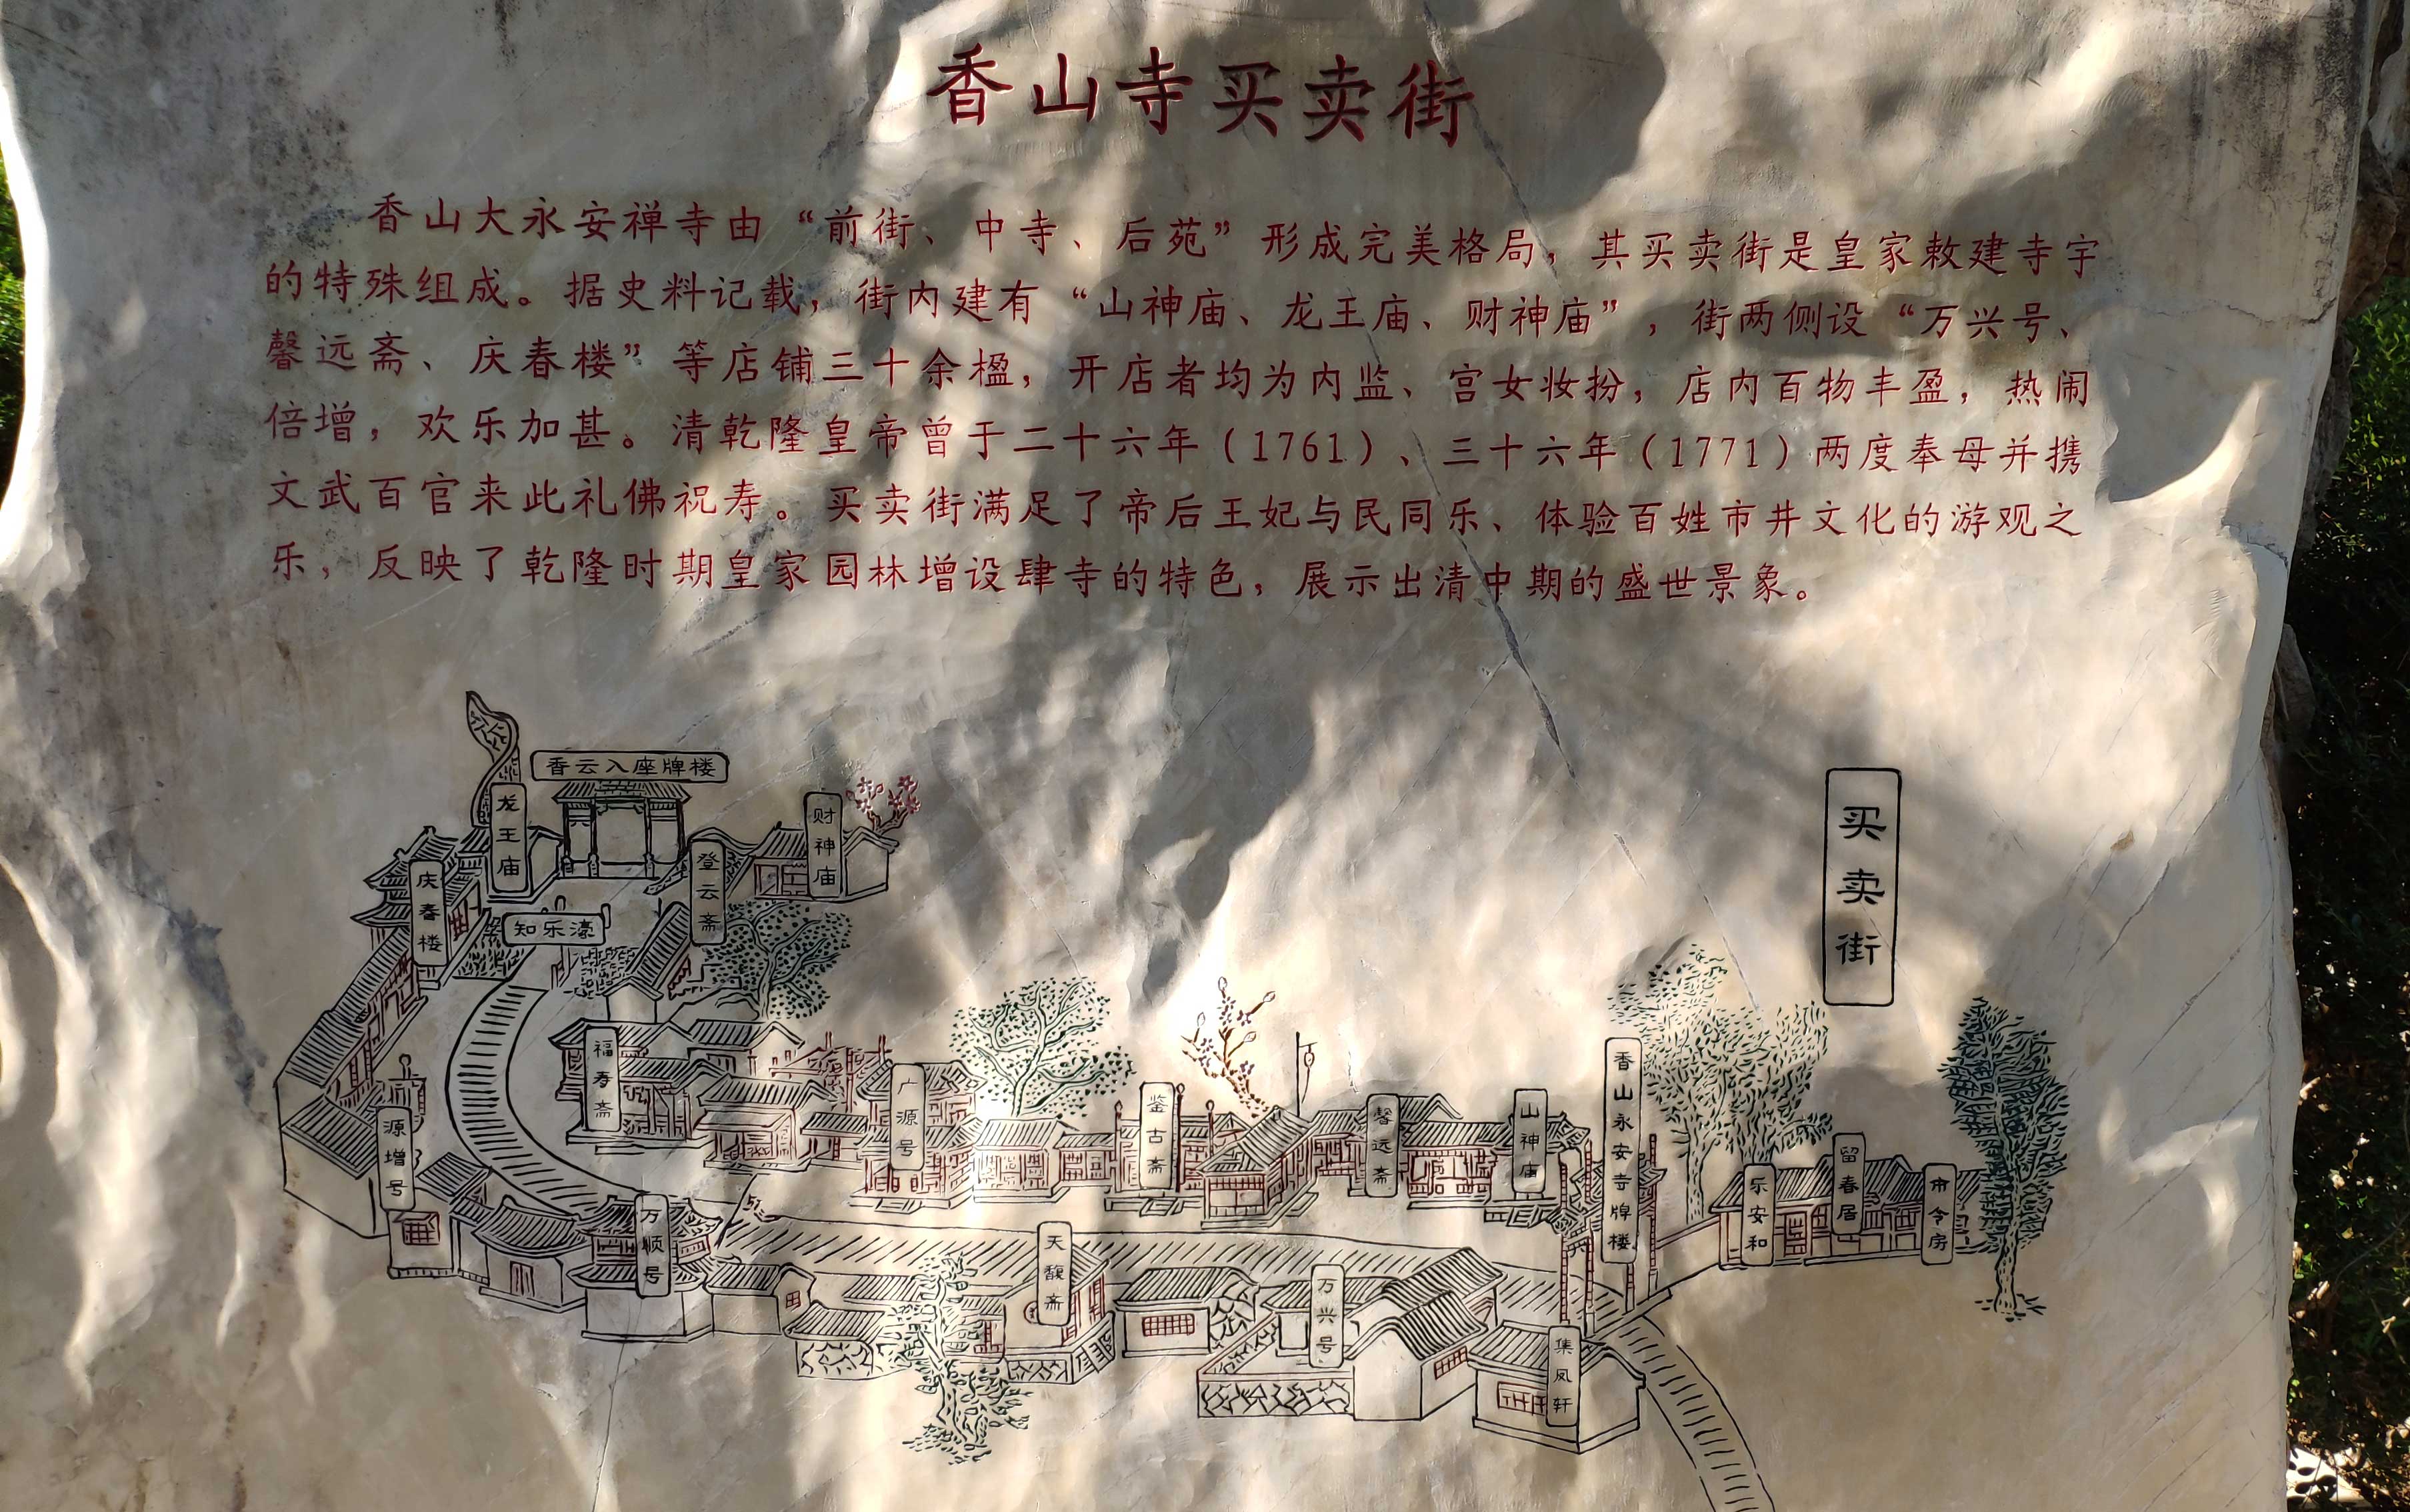 香山寺买卖街
香山大永安禅寺由“前街、中寺、后苑”形成完美格局，其买卖街是皇家敕建寺宇
的特殊组成。据史料记载，街内建有“山神庙、龙王庙、财神庙”，街两侧设“万兴号、
馨远斋、庆春楼”等店铺三十余楹，开店者均为内监、宫女妆扮，店内百物丰盈，热闹
倍增，欢乐加甚。清乾隆皇帝曾于二十六年（1761）、三十六年（1771）两度奉母并携
文武百官来此礼佛祝寿。买卖街满足了帝后王妃与民同乐、体验百姓市井文化的游观之
乐，反映了乾隆时期皇家园林增设肆寺的特色，展示出清中期的盛世景象。
香云入座牌楼
龙王庙
财神庙
买卖街
登云斋
庆春楼
知乐濠
福寿斋
广源号
鉴古斋
馨远斋
山神庙
香山永安寺牌楼
源增号
乐安和
留春居
市令房
万顺号
天馥斋
万兴号
集凤轩